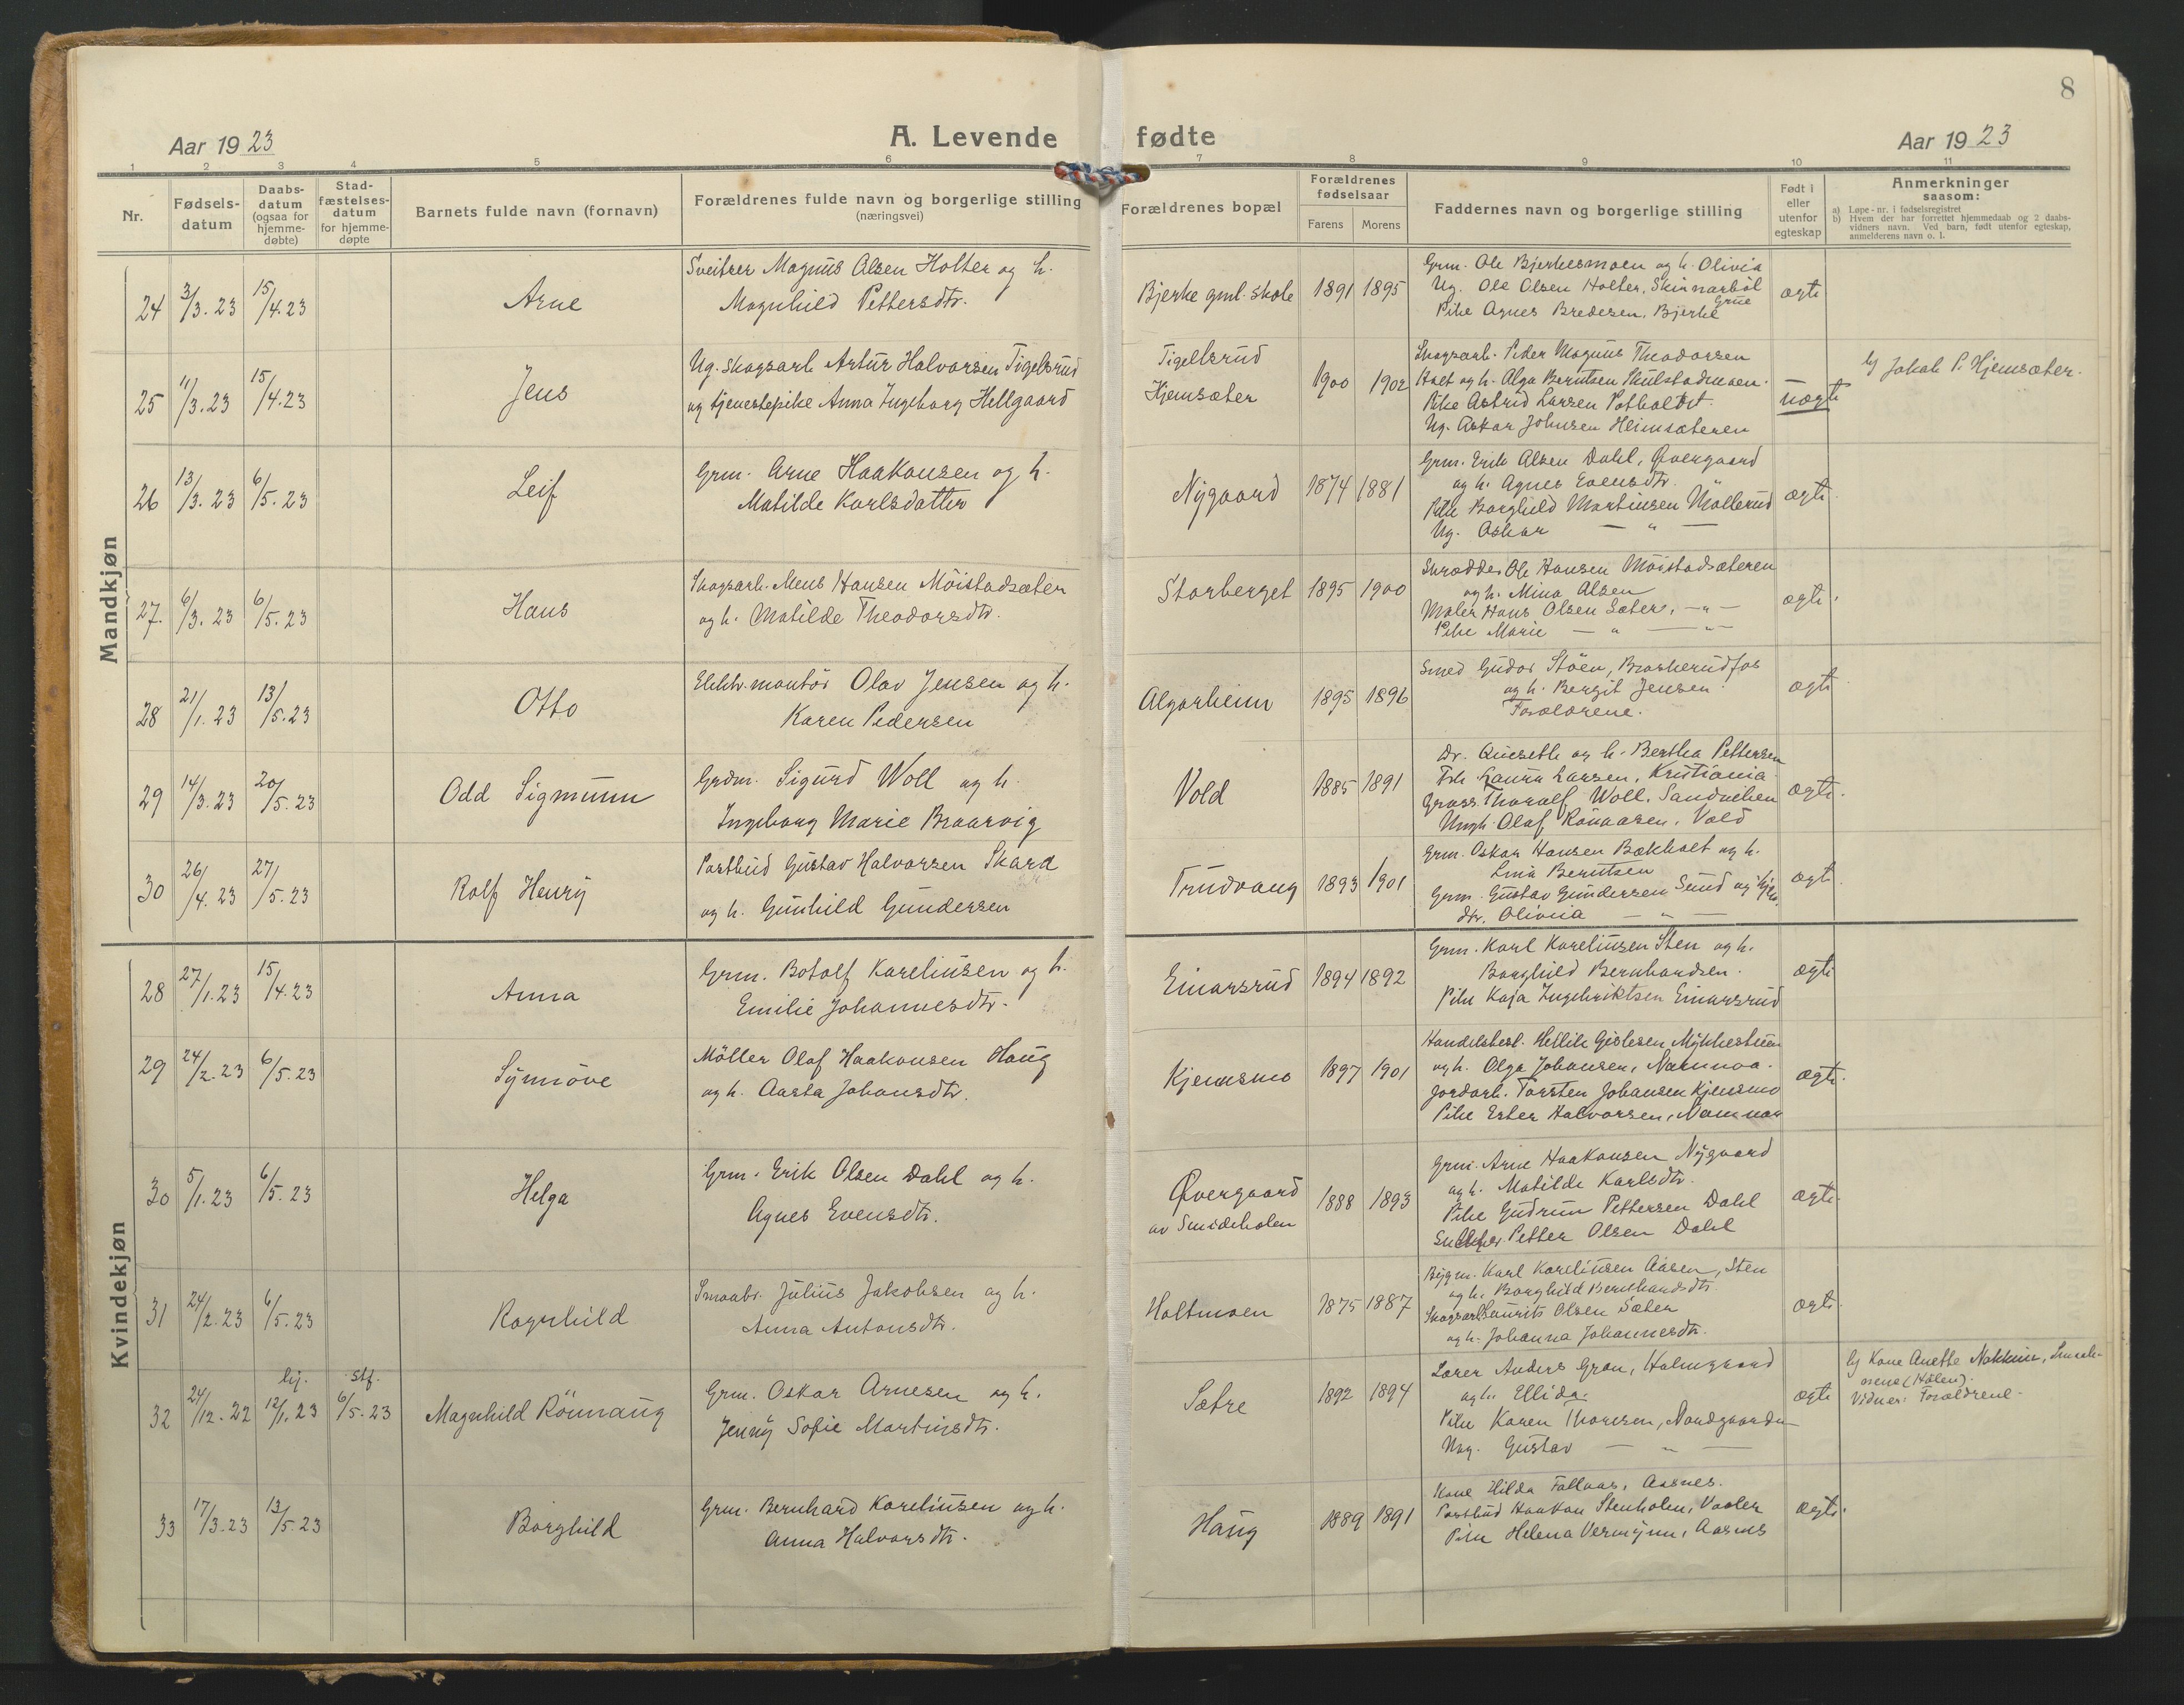 8
Aar 1923
A. Levende fødte
Aar 1923
1 2 3 4 5 6 7 8 9 10 11
Nr.
Fødsels-
datum
Daabs-
datum
(ogsaa for
hjemme-
døbte)
Stad-
fæstelses-
datum
for hjemme-
døpte
Barnets fulde navn (fornavn)
Forældrenes fulde navn og borgerlige stilling
(næringsvei)
Forældrenes bopæl
Forældrenes
fødselsaar
Farens
Morens
Faddernes navn og borgerlige stilling
Født i
eller
utenfor
egteskap
Anmerkninger
saasom:
a) Løpe-nr. i fødselsregistret
b) Hvem der har forrettet hjemmedaab og 2 daabs-
vidners navn. Ved barn, født utenfor egteskap,
anmelderens navn o. l.
Mandkjøn
24 3/3.23 15/4.23 Arne
Sveitser Magnus Olsen Holter og h.
Magnhild Pettersdtr.
Bjerke gml. skole 1891 1895
Grm. Ole Bjerkesmoen og h. Olivia
Ug. Ole Olsen Holter, Skinnarböl
Grue
Pike Agnes Bredesen, Bjerke
ægte
25 11/3.23 15/4.23 Jens
Ug. skogsarb Artur Halvorsen Tigelsrud
og tjenestepike Anna Ingeborg Hellgaard
Tigelsrud
Hjemsæter 1900 1902
Skogsarb. Peder Magnus Theodorsen
Holt og h. Olga Berntsen Skulstadmoen.
Pike Astrid Larsen Potholtet.
Ug. Oskar Johnsen Heimsæteren
uægte
b) Jakob P. Hjemsæter.
26 13/3.23 6/5.23 Leif
Grm. Arne Haakonsen og h.
Matilde Karlsdatter
Nygaard 1874 1881
Grm. Erik Olsen Dahl, Øvergaard
og h. Agnes Evensdtr.
Pike Borghild Martinsen Möllerud
Ug. Oskar — " —
ægte
27. 6/3.23 6/5.23 Hans
Skogsarb. Mens Hansen Möistadsæter
og h. Matilde Theodorsdtr.
Storberget 1895 1900
Skrædder Ole Hansen Möistadsæteren
og h. Mina Olsen
Maler Hans Olsen Sæter, — " —
Pike Marie — " — — " —
ægte.
28 21/1.23 13/5.23 Otto
Elektr. montör Olav Jensen og h.
Karen Pedersen
Algarheim 1895 1896
Smed Gudor Stöen, Braskerudfos
og h. Bergit Jensen.
Forældrene.
ægte
29 14/3.23 20/5.23 Odd Sigmunn
Grdm. Sigurd Woll og h.
Ingeborg Marie Braarvig
Vold 1885 1891
Dr. Qveseth og h. Bertha Pettersen
Frk. Laura Larsen, Kristiania
Gross. Thoralf Woll, Sandviken
Ungk. Olaf Rönaasen, Vold
ægte.
30 26/4.23 27/5.23 Rolf Henry
Postbud Gustav Halvorsen Skard
og h. Gunhild Gundersen
Trudvang 1893 1901
Grm. Oskar Hansen Bækholt og h.
Lina Berntsen
Grm. Gustav Gundersen Sund og
dtr. Olivia — " —
ægte
Kvindekjøn
28 27/1.23 15/4.23 Anna
Grm. Botolf Kareliusen og h.
Emilie Johannesdtr.
Einarsrud 1894 1892
Grm. Karl Kareliusen Sten og h.
Borghild Bernhardsen.
Pike Kaja Ingebriktsen Einarsrud
ægte
29 24/2.23 6/5.23 Synnöve
Möller Olaf Haakonsen Haug
og h. Aasta Johansdtr.
Kjensmo 1897 1901
Handelsbest. Hellik Gislesen Mykkestuen
og h. Olga Johansen, Namnaa.
Jordarb. Torsten Johansen Kjensmo
Pike Ester Halvorsen, Namnaa
ægte.
30 5/1.23 6/5.23 Helga
Grm. Erik Olsen Dahl og h.
Agnes Evensdtr.
Øvergaard
av Smideholen 1888 1893
Grm. Arne Haakonsen Nygaard
og h. Matilde Karlsdtr.
Pike Gudrun Pettersen Dahl
Petter Olsen Dahl
ægte.
31 24/2.23 6/5.23 Ragnhild
Smaabr. Julius Jakobsen og h.
Anna Antonsdtr.
Holtmoen 1875 1887
Bygm. Karl Kareliusen Aasen, Sten
og h. Borghild Bernhardsdtr.
Skogsarb. Laurits Olsen Sæter
og h. Johanna Johannesdtr.
ægte.
32 24/12.22 hj. 12/1.23 stf. 6/5.23 Magnhild Rönnaug
Grm. Oskar Arnesen og h.
Jenny Sofie Martinsdtr.
Sætre 1892 1894
Lærer Anders Grøn, Holmgaard
og h. Ellida.
Pike Karen Thoresen, Nordgaarden
Ung. Gustav — " —
ægte
b) Kone Anette Nakken,
(Hölen).
Vidner: Forældrene.
33 17/3.23 13/5.23 Borghild
Grm. Bernhard Kareliusen og h.
Anna Halvorsdtr.
Haug 1889 1891
Kone Hilda Fallaas, Aasnes.
Postbud Haakon Stenholen, Vaaler
Pike Helena Vermynn, Aasnes
ægte.